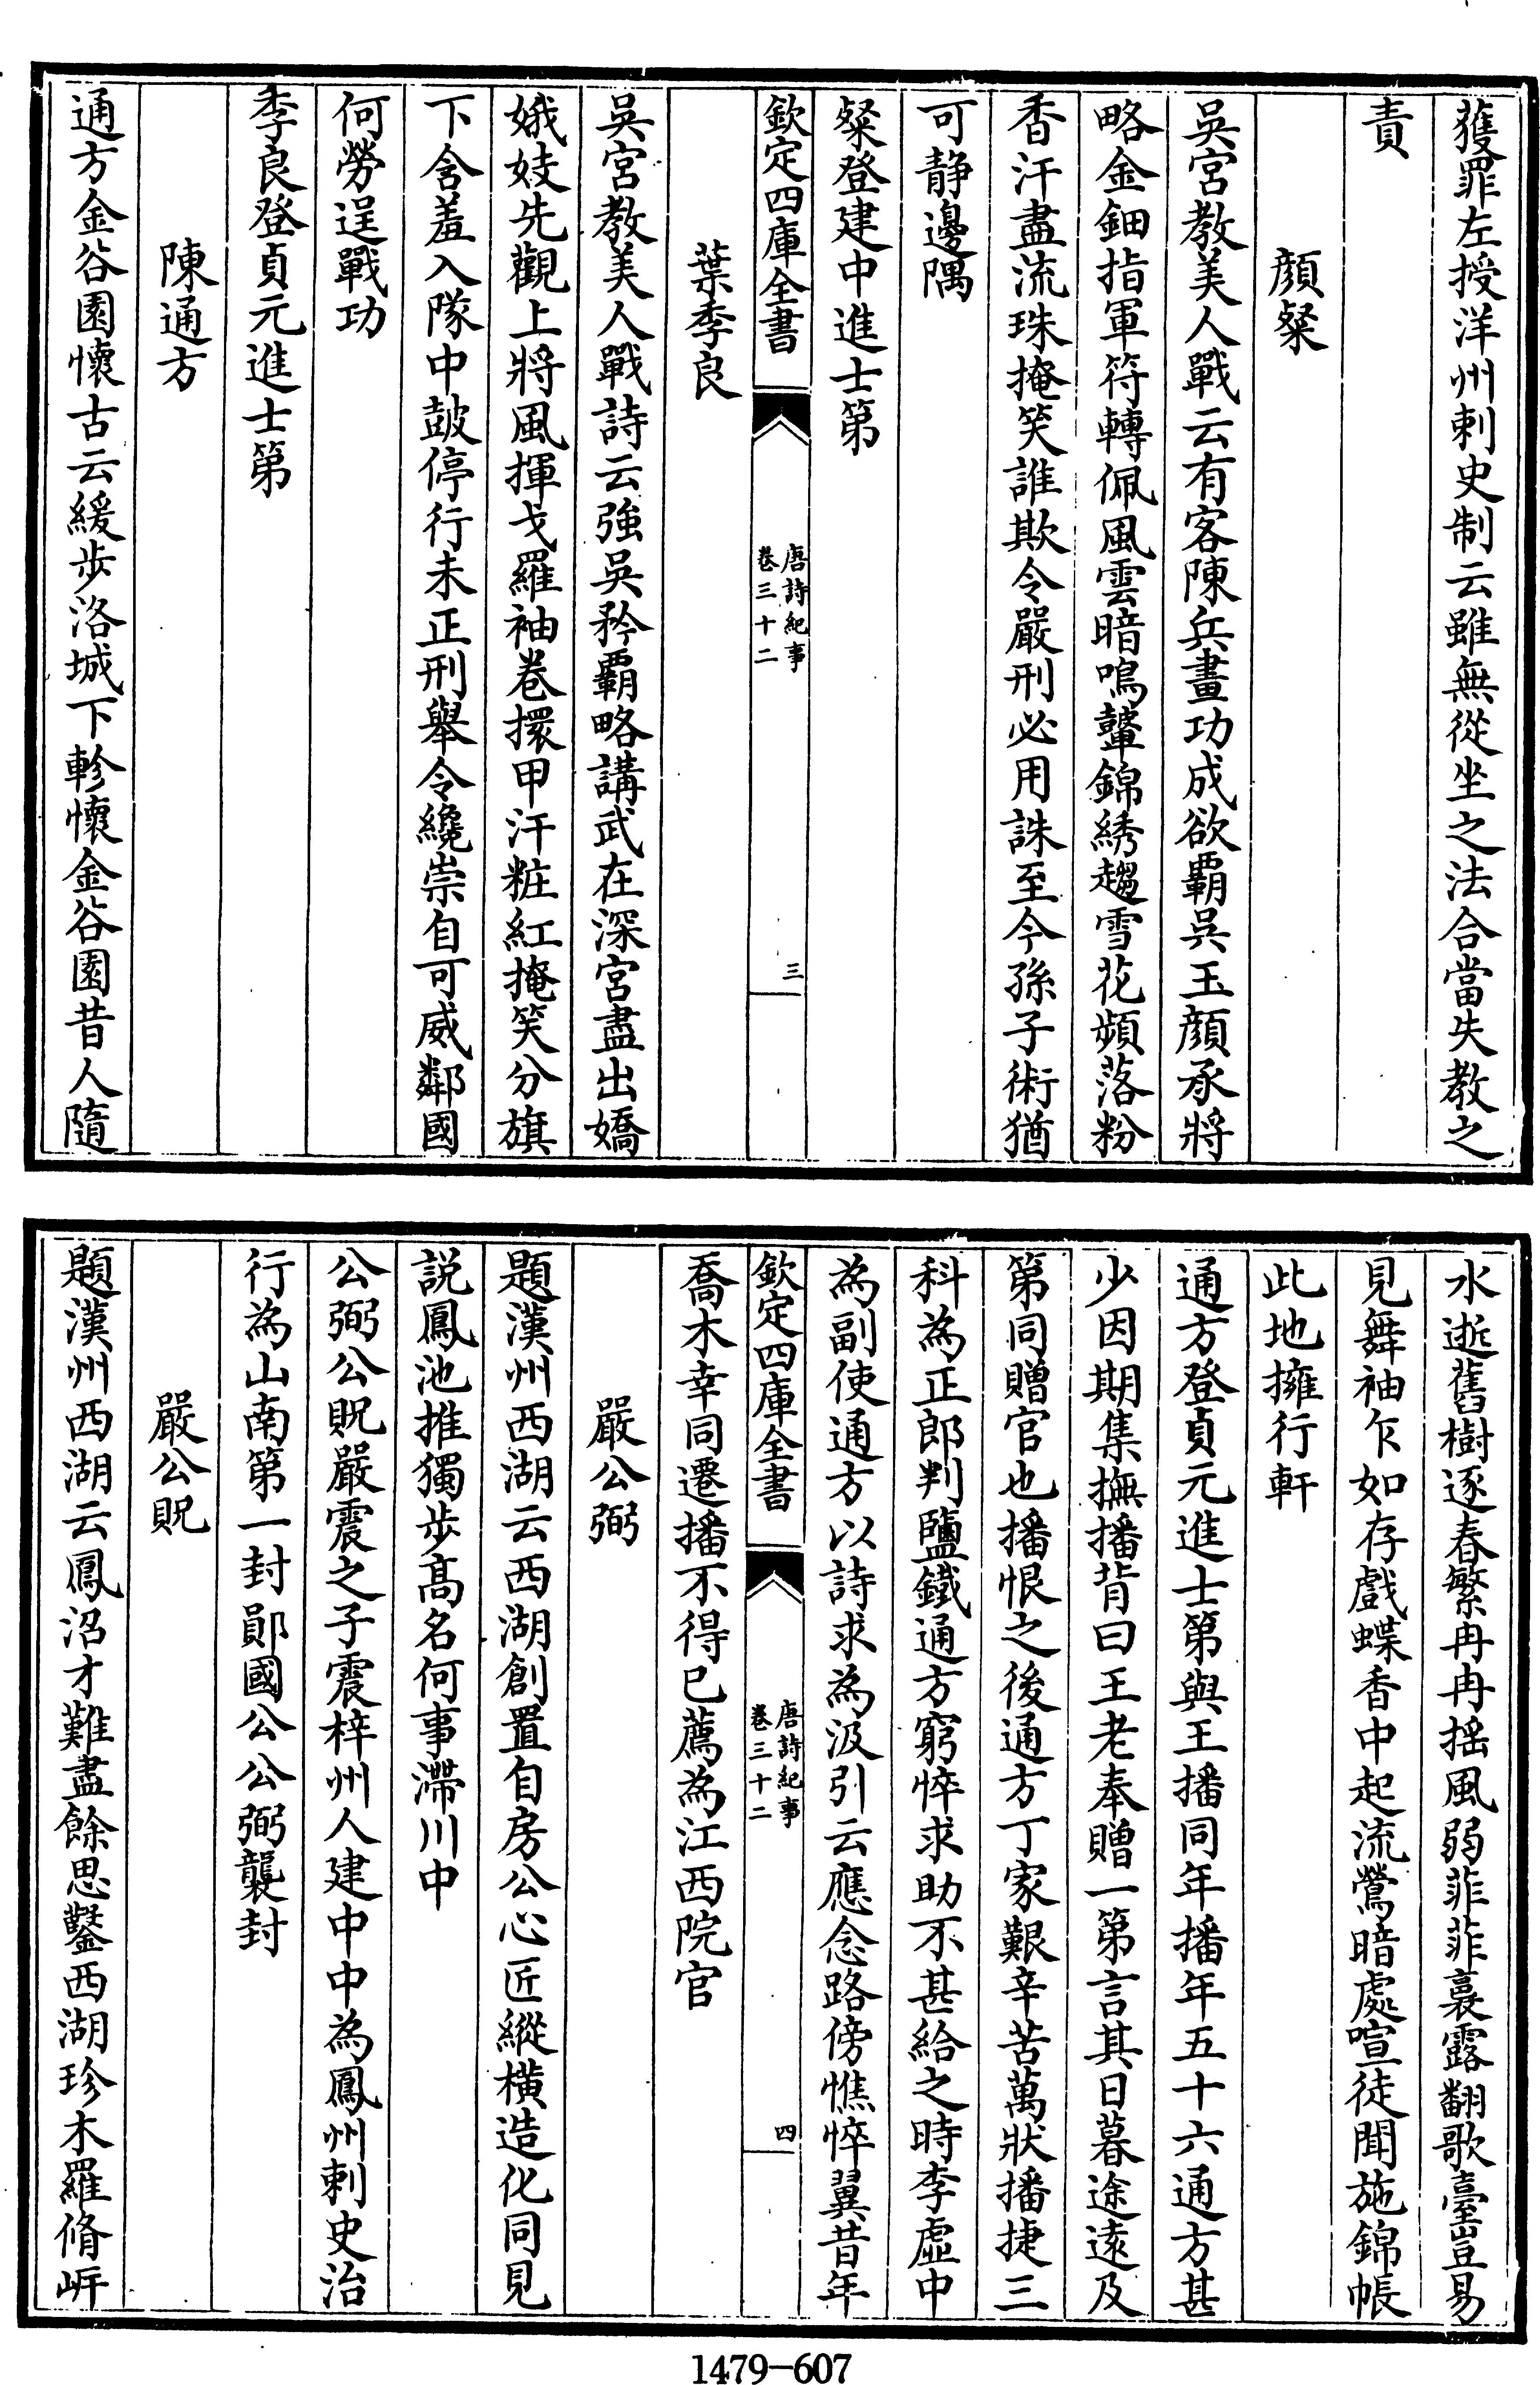 獲罪左授洋州刺史制云雖無從坐之法合當失教之
責
顔粲
吳宫教美人戰云有客陳兵畫功成欲覇吳玉顔承將
略金鈿指軍符轉佩風雲暗鳴鼙錦綉趨雪花頻落粉
香汗盡流珠掩笑誰欺令嚴刑必用誅至今孫子術猶
可静邊隅
粲登建中進士第
欽定四庫全書
唐詩紀事
卷三十二
三
葉季良
吳宫教美人戰詩云強吳矜覇略講武在深宫盡出嬌
娥妓先觀上將風揮戈羅袖卷擐甲汗粧紅掩笑分旗
下含羞入隊中鼓停行未正刑舉令纔崇自可威鄰國
何勞逞戰功
季良登貞元進士第
陳通方
通方金谷園懷古云緩步洛城下軫懷金谷園昔人隨
水逝舊樹逐春繁冉冉揺風弱菲菲裛露翻歌臺豈易
見舞袖乍如存戲蝶香中起流鶯暗處喧徒聞施錦帳
此地擁行軒
通方登貞元進士第與王播同年播年五十六通方甚
少因期集撫播背曰王老奉贈一第言其日暮途逺及
第同贈官也播恨之後通方丁家艱辛苦萬狀播捷三
科為正郎判鹽鐵通方窮悴求助不甚給之時李虚中
為副使通方以詩求為汲引云應念路傍憔悴翼昔年
欽定四庫全書
唐詩紀事
卷三十二
四
喬木幸同遷播不得已薦為江西院官
嚴公弼
題漢州西湖云西湖創置自房公心匠縱横造化同見
説鳳池推獨步髙名何事滯川中
公弼公貺嚴震之子震梓州人建中中為鳳州刺史治
行為山南第一封鄖國公公弼襲封
嚴公貺
題漢州西湖云鳳沼才難盡餘思鑿西湖珍木羅脩㟁
1479-607